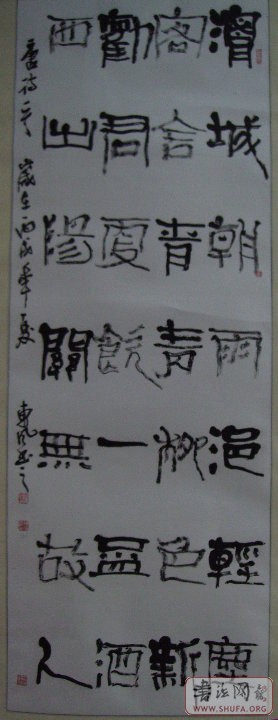 渭城朝雨浥輕塵
客舍青青柳色新
勸君更飲一盃酒
西出陽關無故人
唐詩一首 歲在丙戌年夏 東風書之
書法网
WWW.SHUFA.ORG